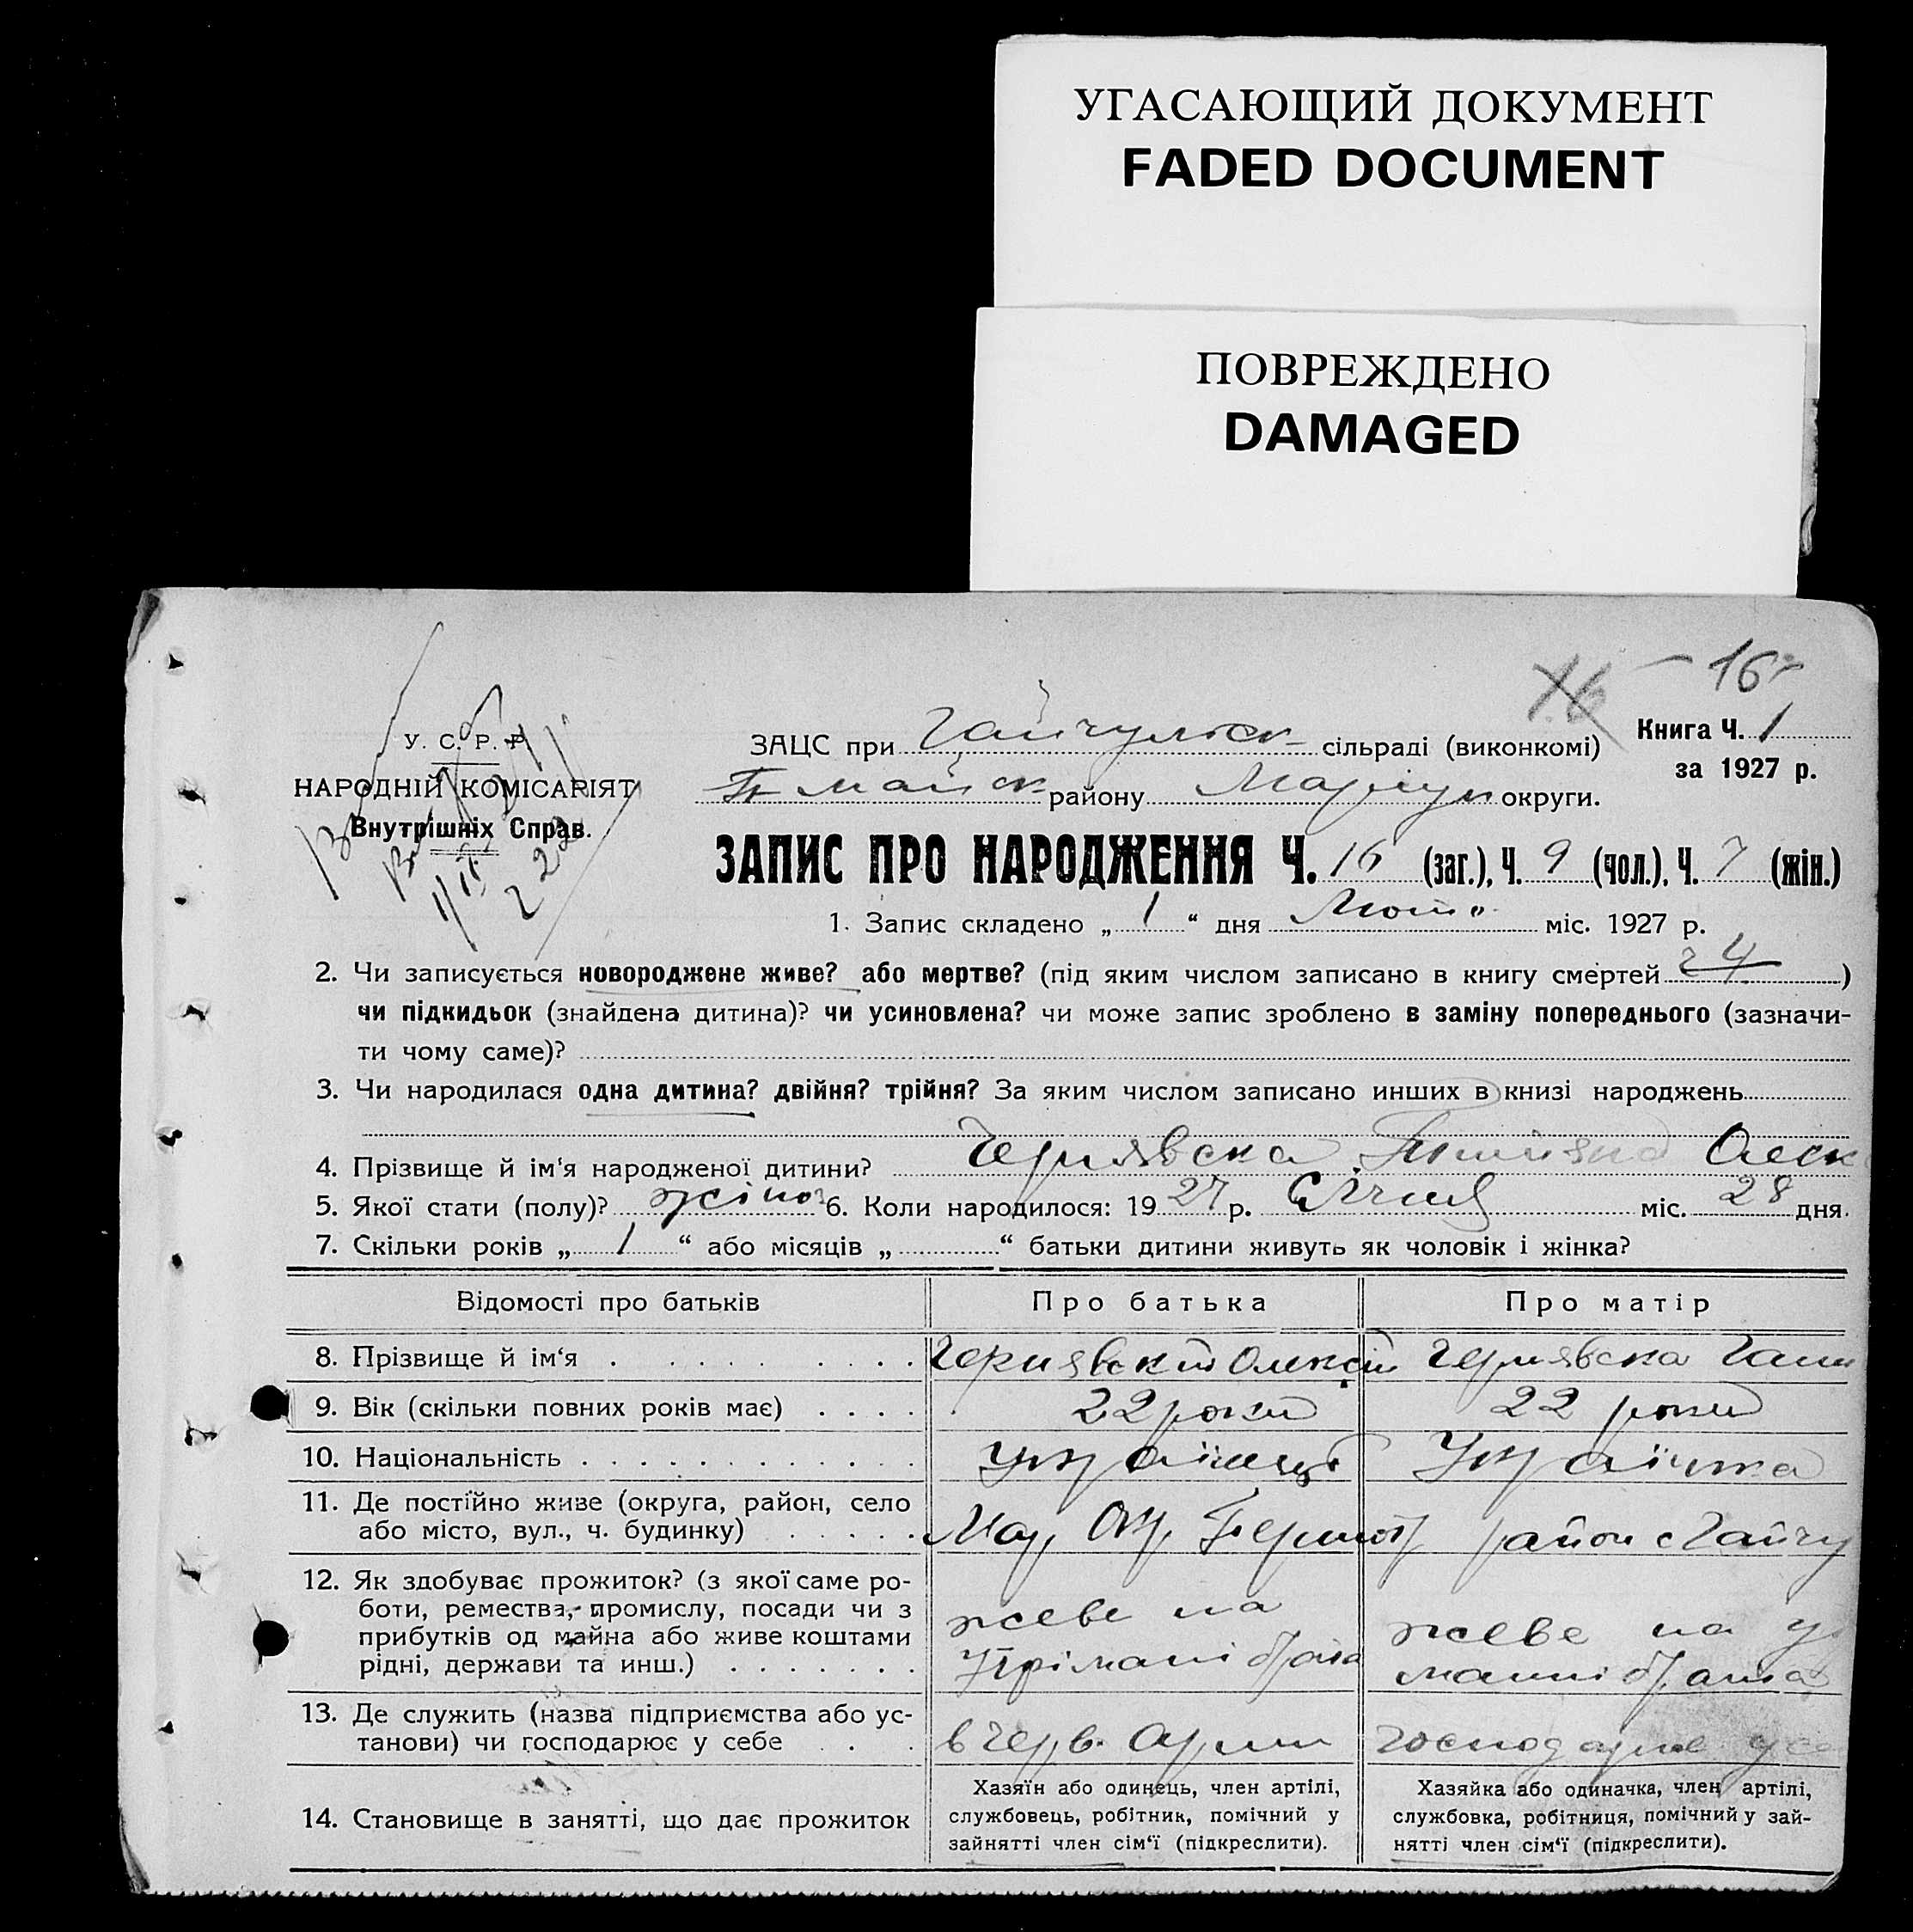 УГАСАЮЩИЙ ДОКУМЕНТ
FADED DOCUMENT
ПОВРЕЖДЕНО
DAMAGED
16
Книга Ч. 1
за 1927 р.
У. С. Р. Р.
НАРОДНІЙ КОМІСАРІЯТ
Внутрішніх Справ.
ЗАЦС при Гайчульск сільраді (виконкомі)
майск району Маріуп округи.
ЗАПИС ПРО НАРОДЖЕННЯ Ч. 16 (заг.), Ч. 9 (чол.), Ч. 7 (жін.)
1. Запис складено „ 1 “ дня Лют міс. 1927 р.
2. Чи записується новороджене живе? або мертве? (під яким числом записано в книгу смертей )
чи підкидьок (знайдена дитина)? чи усиновлена? чи може запис зроблено в заміну попереднього (зазначи-
ти чому саме)?
3. Чи народилася одна дитина? двійня? трійня? За яким числом записано инших в книзі народжень
4. Прізвище й ім‘я народженої дитини? Чернявска Олек
5. Якої стати (полу)? жіноч 6. Коли народилося: 19 27 р. Січня міс. 28 дня.
7. Скільки років „ 1 “ або місяців „ “ батьки дитини живуть як чоловік і жінка?
Відомості про батьків Про батька Про матір
8. Прізвище й ім‘я Чернявский Олексій Чернявска Ганн
9. Вік (скільки повних років має) 22 роки 22 роки
10. Національність Українець Українка
11. Де постійно живе (округа, район, село
або місто, вул., ч. будинку) Мар Окр Першот район с Гайчу
12. Як здобуває прожиток? (з якої саме ро-
боти, ремества, промислу, посади чи з
прибутків од майна або живе коштами
рідні, держави та инш.)
жеве на
утрімані брата
жеве на у
манні брата
13. Де служить (назва підприємства або ус-
танови) чи господарює у себе в Черв. Армии господарює у се
14. Становище в занятті, що дає прожиток
Хазяїн або одинець, член артілі,
службовець, робітник, помічний у
зайнятті член сім‘ї (підкреслити).
Хазяйка або одиначка, член артілі,
службовка, робітниця, помічний у зай-
нятті член сім‘ї (підкреслити).